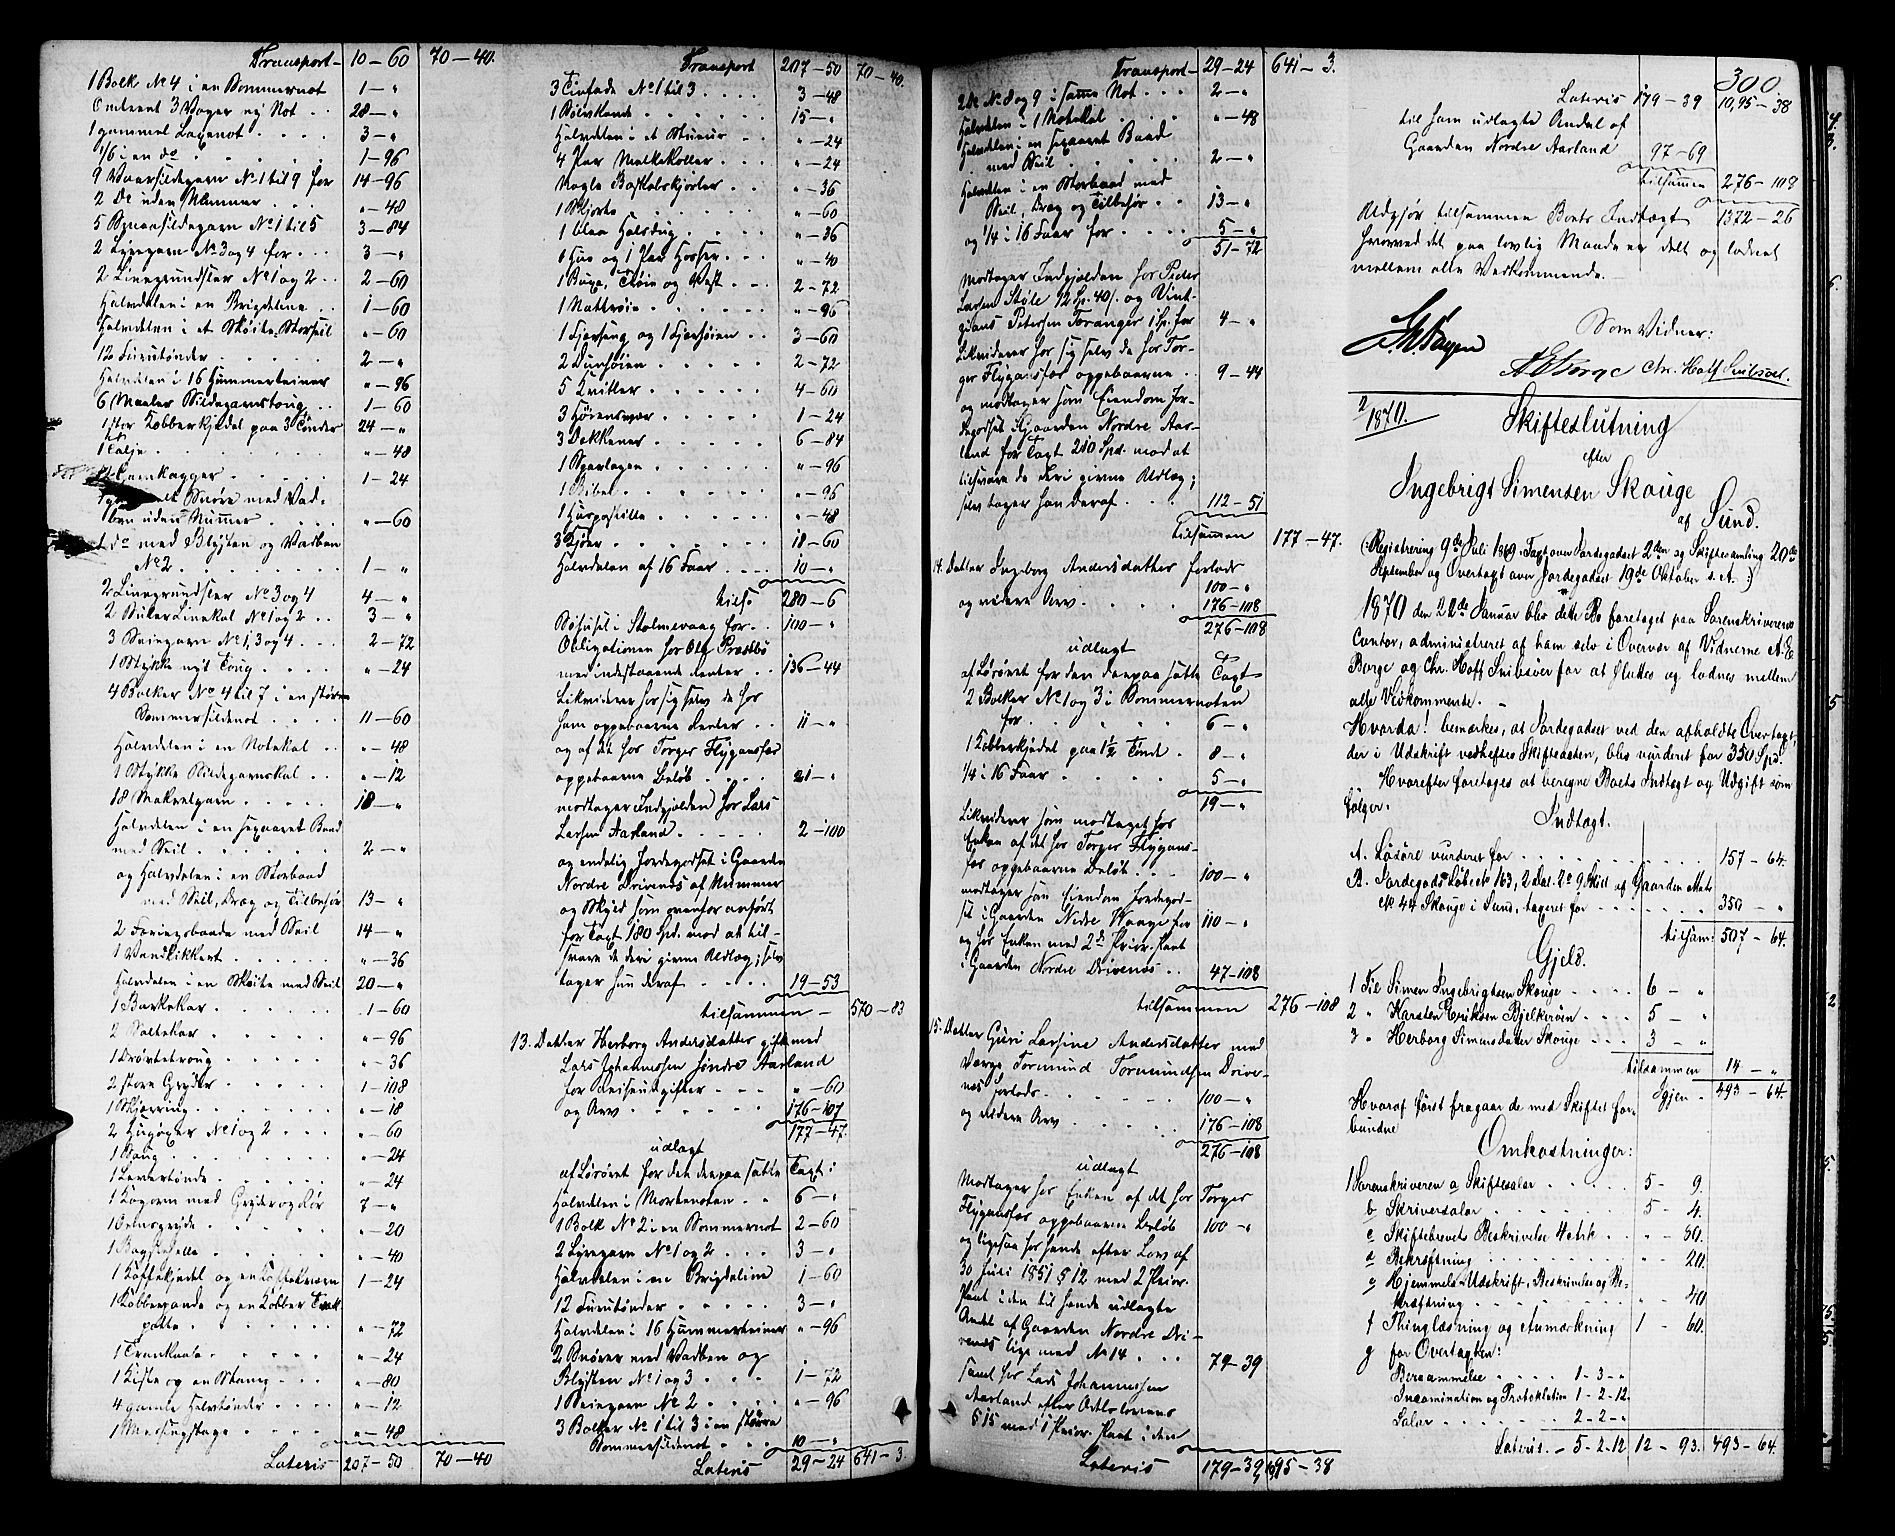 Transport 10–60 70–40.
1 Bolk No 4 i en Sommernot 1–"
Omtrent 3 Vager ny Not 28–"
1 gammel Laxenot 3–"
1/6 i en do 1–96
9 Vaarsildegarn No 1 til 9 for 14–96
2 do uden Nummer "–48
5 Smaasildegarn No 1 til 5 3–84
2 Lysegarn No 3 og 4 for 3–"
2 Linegrundsler No 1 og 2 2–60
Halvdelen i en Brigdeline 1–60
Halvdelen i et Skøite Storseil "–60
12 Furutønder 2–"
Halvdelen i 16 Hummerteiner "–96
6 Maaler Sildegarnstoug 1–60
1 stor Kobberkjedel paa 3 Tønder 24–"
1 Talje "–48
Garnkagger 1–24
Snøre med Vad-
ben uden Nummer "–60
1 do med Blysten og Vadben
No 2 1–"
2 Linegrundsler No 3 og 4 4–"
2 No 1 og 2 3–"
3 Seiegarn No 1, 3 og 4 2–72
1 Stykke nyt Toug "–24
4 Bolker No 4 til 7 i en større
Sommersildenot 11–60
Halvdelen i en Notekal "–48
1 Stykke Sildegarnskal "–12
18 Makrelgarn 18–"
Halvdelen i en sexaaret Baad
med Seil 2–"
og Halvdelen i en Storbaad
med Seil, Dræg og Tilbehør 13–"
2 Færingsbaade med Seil 14–"
1 Vandkikkert "–36
Halvdelen i en Skøite med Seil 20–"
1 Barkekar 1–60
2 Saltekar "–96
1 "–36
2 store Gryder 1–108
1 Skjæring "–18
2 No 1 og 2 "–60
1 Saug "–24
1 "–24
1 Kogovn med Gryde og Rør 7–"
1 Ormsgryde "–20
1 Bagstehelle "–40
1 Kaffekjedel og en Kaffekværn 1–24
1 Kobberpande og en Kobber
potte "–72
1 "–24
1 Kiste og en Stamp "–80
4 gamle Halvtønder "–12
1 Messingstage "–48
Lateris 207–50 70–40
Transport 207–50 70–40.
3 Tinfade No 1 til 3 3–48
1 15–"
Halvdelen i et Stueur "–24
4 Par Melkekoller "–24
Nogle "–36
1 Skjorte "–60
1 Halsdug "–36
1 Hue og 1 Par Hoser "–40
1 Buxe, Trøie og Vest 2–72
1 Nattrøie "–96
1 Fjerseng og 1 Fjerhøien 3–60
2 Dunhøien 2–72
5 Kvitler 4–60
3 1–24
3 Dækkener 6–84
1 Sparlagen "–96
1 Bibel "–96
1 Huspostille "–48
3 Kjøer 18–60
Halvdelen af 16 Faar 10–"
tils. 280–6
Søhusel i Stolmevaag for 100–"
Obligationen hos Ole Præstbø
med indestaaende Renter 136–44
Likviderer hos sig selv de hos
ham oppebaarne Renter 11–"
og af det hos Torger Flygansfær
oppebaarne Beløb 21–"
modtager Indgjælden hos Lars
Larsen Aarland 2–100
og endelig Jordegodset i Gaarden
Nordre Drivenes af Nummer
og Skyld som ovenfor anført
for Taxt 180 Spd. mod at til-
svare de deri givne Udlæg; selv
tager hun deraf 19–53
tilsammen – 570–83
13. Datter Herborg Andersdatter gift med
Lars Johannessen søndre Aarland
for Reiseudgifter "–60
og Arv 176–107
177–47.
udlagt
af Løsøret for det derpaa satte Taxt:
Halvdelen i Mortenoten 6–"
1 Bolk No 2 i en Sommernot 2–60
2 Lysegarn No 1 og 2 3–"
Halvdelen i en Brigdeline 1–60
12 Furutønder 3–"
Halvdelen i 16 Hummerteiner "–96
2 Snører med Vadben og
Blysten No 1 og 3 1–72
1 Seiegarn No 2 "–96
3 Bolker No 1 til 3 i en større
Sommersildenot 10–"
Lateris 29–24 641–3.
Transport 29–24 641–3.
2 do No 8 og 9 i samme Not 2–"
Halvdelen i 1 Notekal "–48
Halvdelen i en sexaaret Baad
med Seil 2–"
Halvdelen i en Storbaad med
Seil, Dræg og Tilbehør 13–"
og 1/4 i 16 Faar for 5–"
51–72
Modtager Indgjælden hos Peder
Larsen Støle 2 Sp. 40 s. og Vint-
Petersen Toranger 1 Sp. for 4–"
Likviderer hos sig selv de hos Tor-
ger Flygansfær oppebaarne 9–44
og modtager som Eiendom Jor-
degodset i Gaarden Nordre Aar-
land for Taxt 210 Spd. mod at
tilsvare de deri givne Udlæg;
selv tager han deraf 112–51
tilsammen 177–47.
14. Datter Ingeborg Andersdatter forlods
100–"
og videre Arv 176–108
276–108
udlagt
af Løsøret for den derpaa satte Taxt
2 Bolker No 1 og 3 i Sommernoten
for 6–"
1 Kobberkjedel paa 1½ Tønde 8–"
1/4 i 16 Faar 5–"
19–"
Likviderer som modtaget hos
Enken af det hos Torger Flygans-
fær oppebaarne Beløb 100–"
modtager som Eiendom Jordegod-
set i Gaarden Nedre Waage for 110–"
og hos Enken med 2den Prior. Pant
i Gaarden Nordre Drivenes 47–108
tilsammen 276–108
15. Datter Guri Larsine Andersdatter med
Værge Tormund Tormundsen Drive-
nes forlods 100–"
og videre Arv 176–108
276–108
udlagt
Modtager hos Enken af det hos Torger
Flygansfær oppebaarne Beløb 100–"
og ligesaa hos hende efter Lov af
30 Juli 1851 § 12 med 2 Prior.
Pant i den til hende udlagte
Andel af Gaarden Nordre Dri-
venes lige med No 14 79–39
samt hos Lars Johannessen
Aarland efter Odelslovens
§ 15 med 1 Prior. Pant i den
Lateris 179–39 1095–38
300
Lateris 179–39 1095–38
til ham udlagte Andel af
Gaarden Nordre Aarland 97–69
tilsammen 276–108
Udgjør tilsammen Boets Indtægt 1372–26
hvorved det paa lovlig Maade er delt og lodnet
mellem alle Vedkommende.
Som Vidner:
A E Borge Chr. Hoff Snibsøer.
2/1870.
Skifteslutning
efter
Ingebrigt Simensen Skouge
af Sund.
(Registrering 9de Juli 1869, Taxt over Jordegodset 2den og Skiftesamling 20de
September og Overtaxt over Jordegodset 19de Oktober s. A.)
1870 den 22de Januar blev dette Bo foretaget paa Sorenskriverens
Contor, administreret af ham selv i Overvær af Vidnerne A. E.
Borge og Chr. Hoff Snibsøer for at sluttes og lodnes mellem
alle Vedkommende.
Hvorda! bemerkes, at Jordegodset ved den afholdte Overtaxt,
der i Udskrift vedheftes Skifteakten, blev vurderet for 350 Spd.
Hvorefter foretoges at beregne Boets Indtægt og Udgift som
følger:
Indtægt.
A. Løsøre vurderet for 157–64.
B. Jordegods Løbe No 163, 2 Dal. 2 O 9 Skill af Gaarden Mat:
No 44 Skouge i Sund, taxeret for 350–"
tilsam: 507–64.
Gjeld.
1 Til Simen Ingebrigtsen Skouge 6–"
2 " Karsten Eriksen Bjelkerøen 5–"
3 " Herborg Simensdatter Skouge 3–"
tilsammen 14–"
igjen 493–64.
Hvoraf først fragaar de med Skiftet for-
bundne
Omkostninger:
1 Sorenskriveren a Skiftesalær 5–9.
b Skriversalær 5–4.
c Skiftebrevets Beskrivelse 4 ark "–80.
d Bekræftning "–20.
e Hjemmels-Udskrift, Beskrivelse og Be-
kræftning "–40
f Thinglæsning og Anmærkning 1–60.
g for Overtaxten:
Berammelse 1–3–"
Incamination og Protokollation 1–2–12
Salær 2–2–"
Lateris. – 5–2–12 12–93. 493–64.